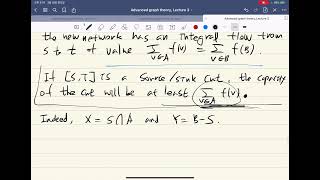 Advanced graph theory, Lecture 3
Advanced graph theory, Lecture 3
the new network has an integral flow from
s to t of value Σ f(v) = Σ f(B).
v∈A v∈B
If [S,T] is a source/sink cut, the capacity
of the cut will be at least Σ f(v).
v∈A
Indeed, X = S∩A and Y = B-S.